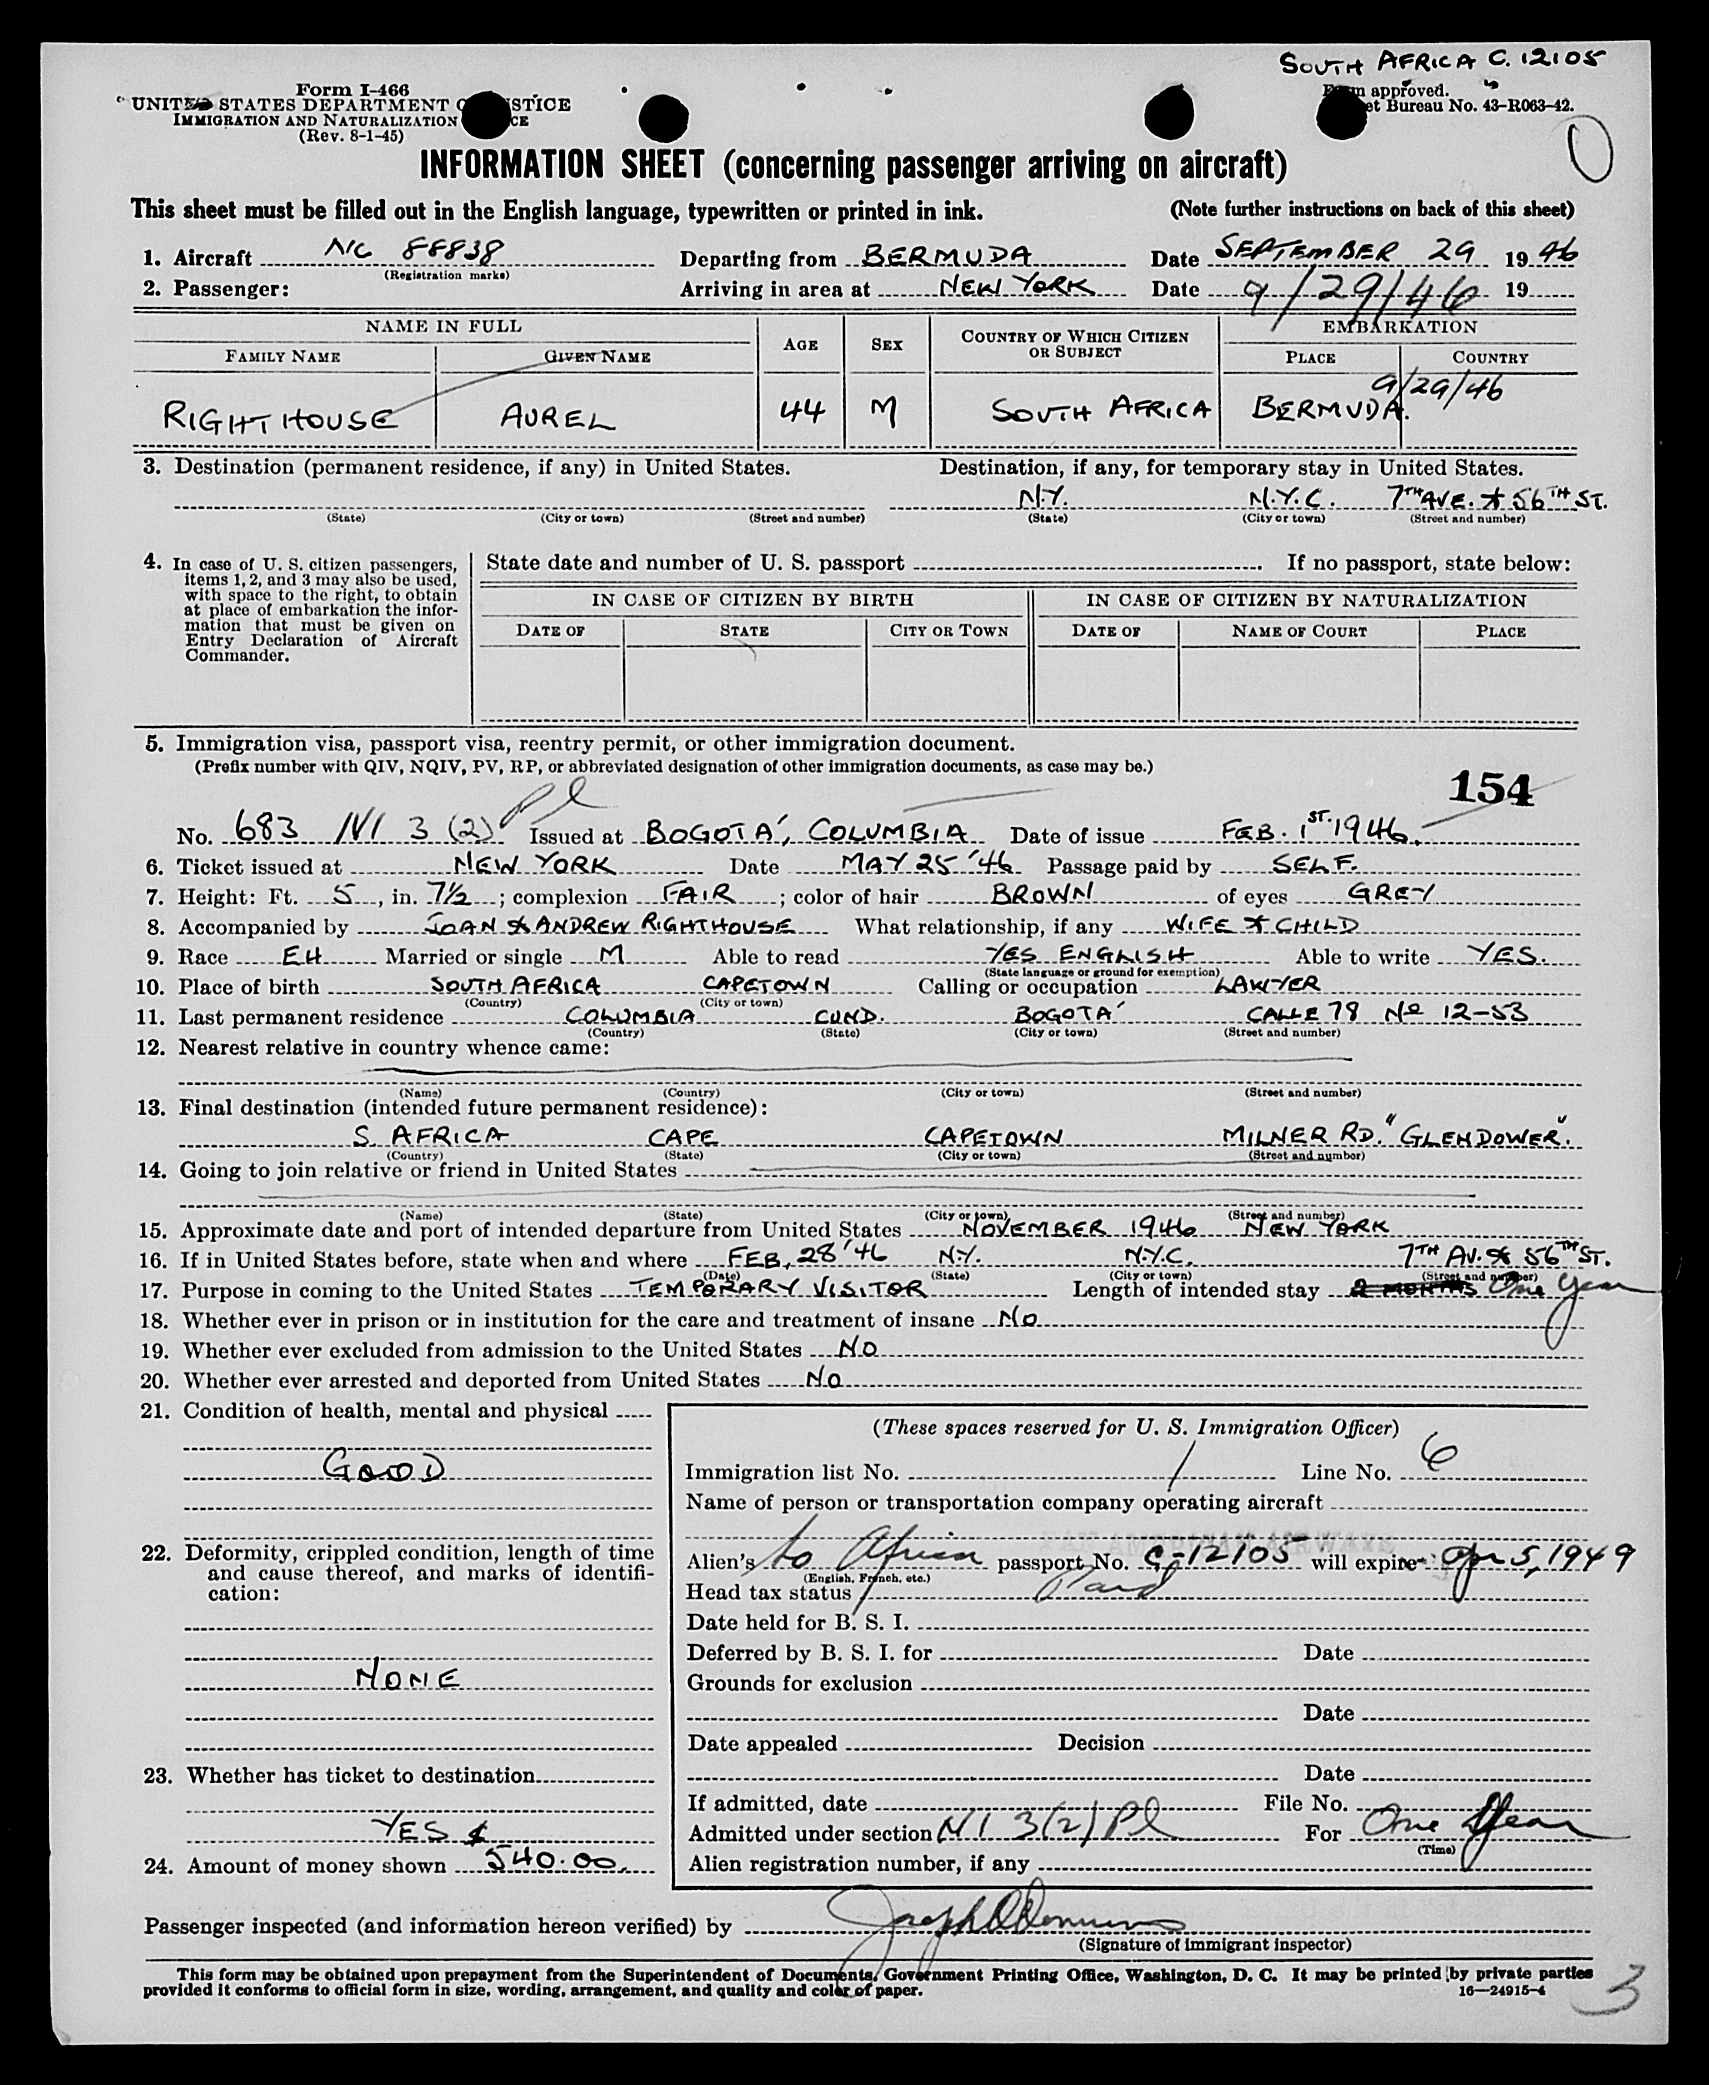 SOUTH AFRICA C. 12105
Form I-466
UNITED STATES DEPARTMENT OF JUSTICE
IMMIGRATION AND NATURALIZATION SERVICE
(Rev. 8-1-45)
Form approved.
Budget Bureau No. 43-R063-42.
INFORMATION SHEET (concerning passenger arriving on aircraft)
This sheet must be filled out in the English language, typewritten or printed in ink. (Note further instructions on back of this sheet)
1. Aircraft NC 88838 Departing from BERMUDA Date SEPTEMBER 29 1946
(Registration marks)
2. Passenger: Arriving in area at NEW YORK Date 9/29/46 19
NAME IN FULL AGE SEX COUNTRY OF WHICH CITIZEN OR SUBJECT EMBARKATION
FAMILY NAME GIVEN NAME PLACE COUNTRY
9/29/46
RIGHTHOUSE AUREL 44 M SOUTH AFRICA BERMUDA.
3. Destination (permanent residence, if any) in United States. Destination, if any, for temporary stay in United States.
N.Y. N.Y.C. 7TH AVE. & 56TH ST.
(State) (City or town) (Street and number) (State) (City or town) (Street and number)
4. In case of U. S. citizen passengers, items 1, 2, and 3 may also be used, with space to the right, to obtain at place of embarkation the information that must be given on Entry Declaration of Aircraft Commander.
State date and number of U. S. passport If no passport, state below:
IN CASE OF CITIZEN BY BIRTH IN CASE OF CITIZEN BY NATURALIZATION
DATE OF STATE CITY OR TOWN DATE OF NAME OF COURT PLACE
5. Immigration visa, passport visa, reentry permit, or other immigration document.
(Prefix number with QIV, NQIV, PV, RP, or abbreviated designation of other immigration documents, as case may be.)
154
No. 683 NI 3 (2) Pl Issued at BOGOTÁ, COLUMBIA Date of issue FEB. 1ST 1946.
6. Ticket issued at NEW YORK Date MAY 25 '46 Passage paid by SELF.
7. Height: Ft. 5, in. 7½; complexion FAIR; color of hair BROWN of eyes GREY
8. Accompanied by JOAN & ANDREW RIGHTHOUSE What relationship, if any WIFE & CHILD
9. Race EH Married or single M Able to read YES ENGLISH Able to write YES.
(State language or ground for exemption)
10. Place of birth SOUTH AFRICA CAPETOWN Calling or occupation LAWYER
(Country) (City or town)
11. Last permanent residence COLUMBIA CUND. BOGOTÁ CALLE 78 No 12-53
(Country) (State) (City or town) (Street and number)
12. Nearest relative in country whence came:
(Name) (Country) (City or town) (Street and number)
13. Final destination (intended future permanent residence):
S. AFRICA CAPE CAPETOWN MILNER RD. "GLENDOWER".
(Country) (State) (City or town) (Street and number)
14. Going to join relative or friend in United States
(Name) (State) (City or town) (Street and number)
15. Approximate date and port of intended departure from United States NOVEMBER 1946 NEW YORK
16. If in United States before, state when and where FEB, 28 '46 N.Y. N.Y.C. 7TH AV. & 56TH ST.
(Date) (State) (City or town) (Street and number)
17. Purpose in coming to the United States TEMPORARY VISITOR Length of intended stay 2 MONTHS One Year
18. Whether ever in prison or in institution for the care and treatment of insane No
19. Whether ever excluded from admission to the United States NO
20. Whether ever arrested and deported from United States NO
21. Condition of health, mental and physical
GOOD
22. Deformity, crippled condition, length of time and cause thereof, and marks of identification:
NONE
23. Whether has ticket to destination
YES $
24. Amount of money shown 540.00.
(These spaces reserved for U. S. Immigration Officer)
Immigration list No. 1 Line No. 6
Name of person or transportation company operating aircraft
Alien's So Africa passport No. C-12105 will expire Apr 5, 1949
(English, French, etc.)
Head tax status Paid
Date held for B. S. I.
Deferred by B. S. I. for Date
Grounds for exclusion
Date
Date appealed Decision
Date
If admitted, date File No.
Admitted under section NI 3(2) Pl For One Year
(Time)
Alien registration number, if any
Passenger inspected (and information hereon verified) by
(Signature of immigrant inspector)
This form may be obtained upon prepayment from the Superintendent of Documents, Government Printing Office, Washington, D. C. It may be printed by private parties
provided it conforms to official form in size, wording, arrangement, and quality and color of paper. 16—24915-4
3